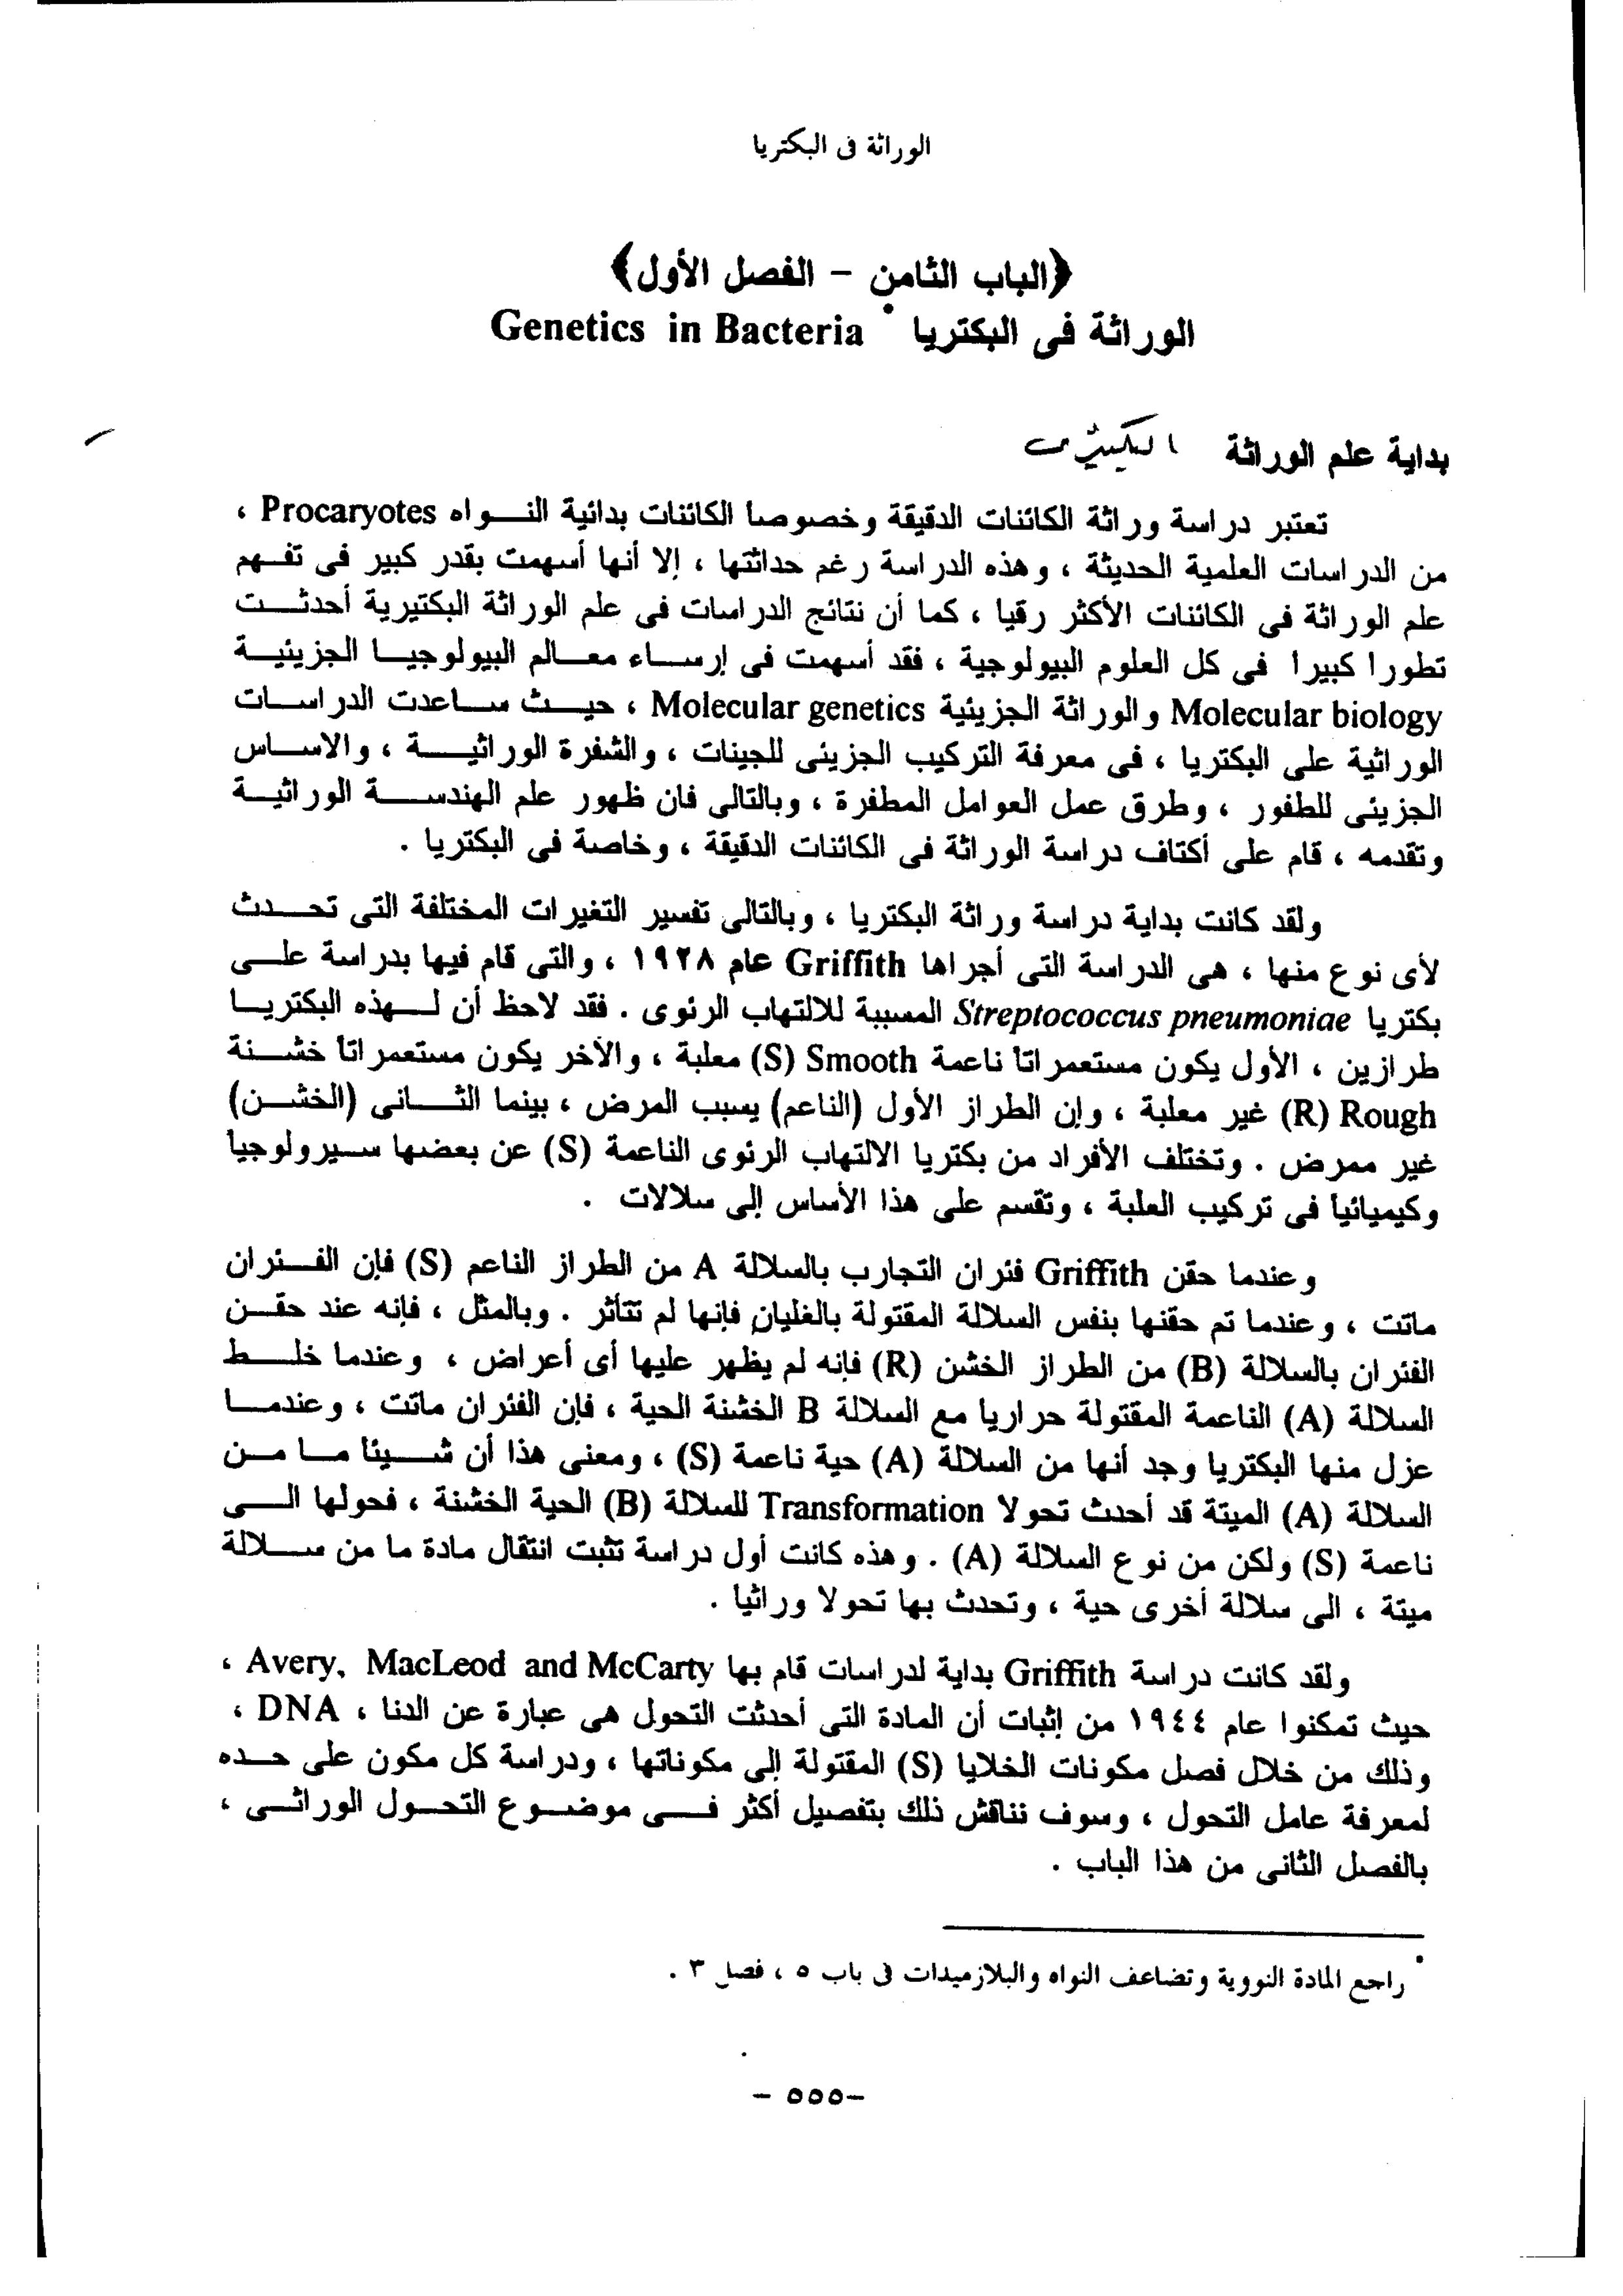 الوراثة فى البكتريا
﴿الباب الثامن - الفصل الأول﴾
الوراثة فى البكتريا * Genetics in Bacteria
بداية علم الوراثة البكتيرى
تعتبر دراسة وراثة الكائنات الدقيقة وخصوصا الكائنات بدائية النواه Procaryotes ،
من الدراسات العلمية الحديثة ، وهذه الدراسة رغم حداثتها ، إلا أنها أسهمت بقدر كبير فى تفهم
علم الوراثة فى الكائنات الأكثر رقيا ، كما أن نتائج الدراسات فى علم الوراثة البكتيرية أحدثت
تطورا كبيرا فى كل العلوم البيولوجية ، فقد أسهمت فى إرساء معالم البيولوجيا الجزيئية
Molecular biology والوراثة الجزيئية Molecular genetics ، حيث ساعدت الدراسات
الوراثية على البكتريا ، فى معرفة التركيب الجزيئى للجينات ، والشفرة الوراثية ، والاساس
الجزيئى للطفور ، وطرق عمل العوامل المطفرة ، وبالتالى فان ظهور علم الهندسة الوراثية
وتقدمه ، قام على أكتاف دراسة الوراثة فى الكائنات الدقيقة ، وخاصة فى البكتريا .
ولقد كانت بداية دراسة وراثة البكتريا ، وبالتالى تفسير التغيرات المختلفة التى تحدث
لأى نوع منها ، هى الدراسة التى أجراها Griffith عام ١٩٢٨ ، والتى قام فيها بدراسة على
بكتريا Streptococcus pneumoniae المسببة للالتهاب الرئوى . فقد لاحظ أن لهذه البكتريا
طرازين ، الأول يكون مستعمراتاً ناعمة Smooth (S) معلبة ، والآخر يكون مستعمراتاً خشنة
Rough (R) غير معلبة ، وإن الطراز الأول (الناعم) يسبب المرض ، بينما الثانى (الخشن)
غير ممرض . وتختلف الأفراد من بكتريا الالتهاب الرئوى الناعمة (S) عن بعضها سيرولوجيا
وكيميائياً فى تركيب العلبة ، وتقسم على هذا الأساس إلى سلالات .
وعندما حقن Griffith فئران التجارب بالسلالة A من الطراز الناعم (S) فإن الفئران
ماتت ، وعندما تم حقنها بنفس السلالة المقتولة بالغليان فإنها لم تتأثر . وبالمثل ، فإنه عند حقن
الفئران بالسلالة (B) من الطراز الخشن (R) فإنه لم يظهر عليها أى أعراض ، وعندما خلط
السلالة (A) الناعمة المقتولة حراريا مع السلالة B الخشنة الحية ، فإن الفئران ماتت ، وعندما
عزل منها البكتريا وجد أنها من السلالة (A) حية ناعمة (S) ، ومعنى هذا أن شيئا ما من
السلالة (A) الميتة قد أحدث تحولا Transformation للسلالة (B) الحية الخشنة ، فحولها الى
ناعمة (S) ولكن من نوع السلالة (A) . وهذه كانت أول دراسة تثبت انتقال مادة ما من سلالة
ميتة ، الى سلالة أخرى حية ، وتحدث بها تحولا وراثيا .
ولقد كانت دراسة Griffith بداية لدراسات قام بها Avery, MacLeod and McCarty ،
حيث تمكنوا عام ١٩٤٤ من إثبات أن المادة التى أحدثت التحول هى عبارة عن الدنا ، DNA ،
وذلك من خلال فصل مكونات الخلايا (S) المقتولة إلى مكوناتها ، ودراسة كل مكون على حده
لمعرفة عامل التحول ، وسوف نناقش ذلك بتفصيل أكثر فى موضوع التحول الوراثى ،
بالفصل الثانى من هذا الباب .
* راجع المادة النووية وتضاعف النواه والبلازميدات فى باب ٥ ، فصل ٣ .
- ٥٥٥-